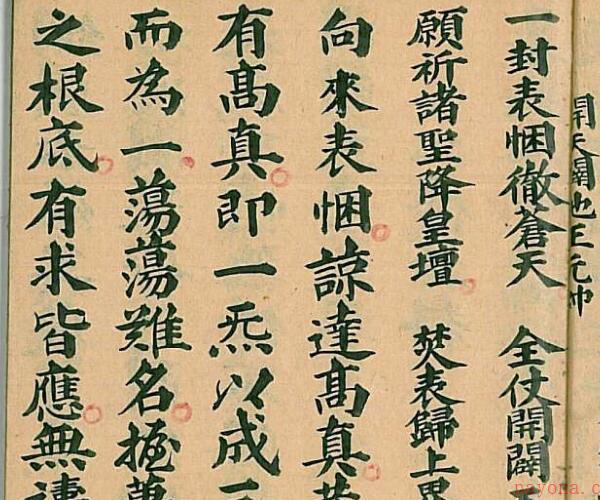 開天
一封表悃徹蒼天 全仗開闢
願祈諸聖降皇壇 焚表歸上
向來表悃諒達髙真
有髙真即一炁以成
而為一蕩蕩難名握萬
之根底有求皆應無
nayona.cn